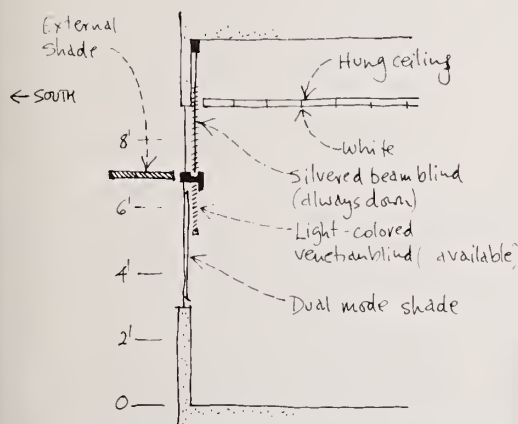 External
Shade
← SOUTH
Hung ceiling
8'
White
Silvered beam blind
(always down)
6'
Light-colored
venetian blind ( available)
4'
Dual mode shade
2'
0